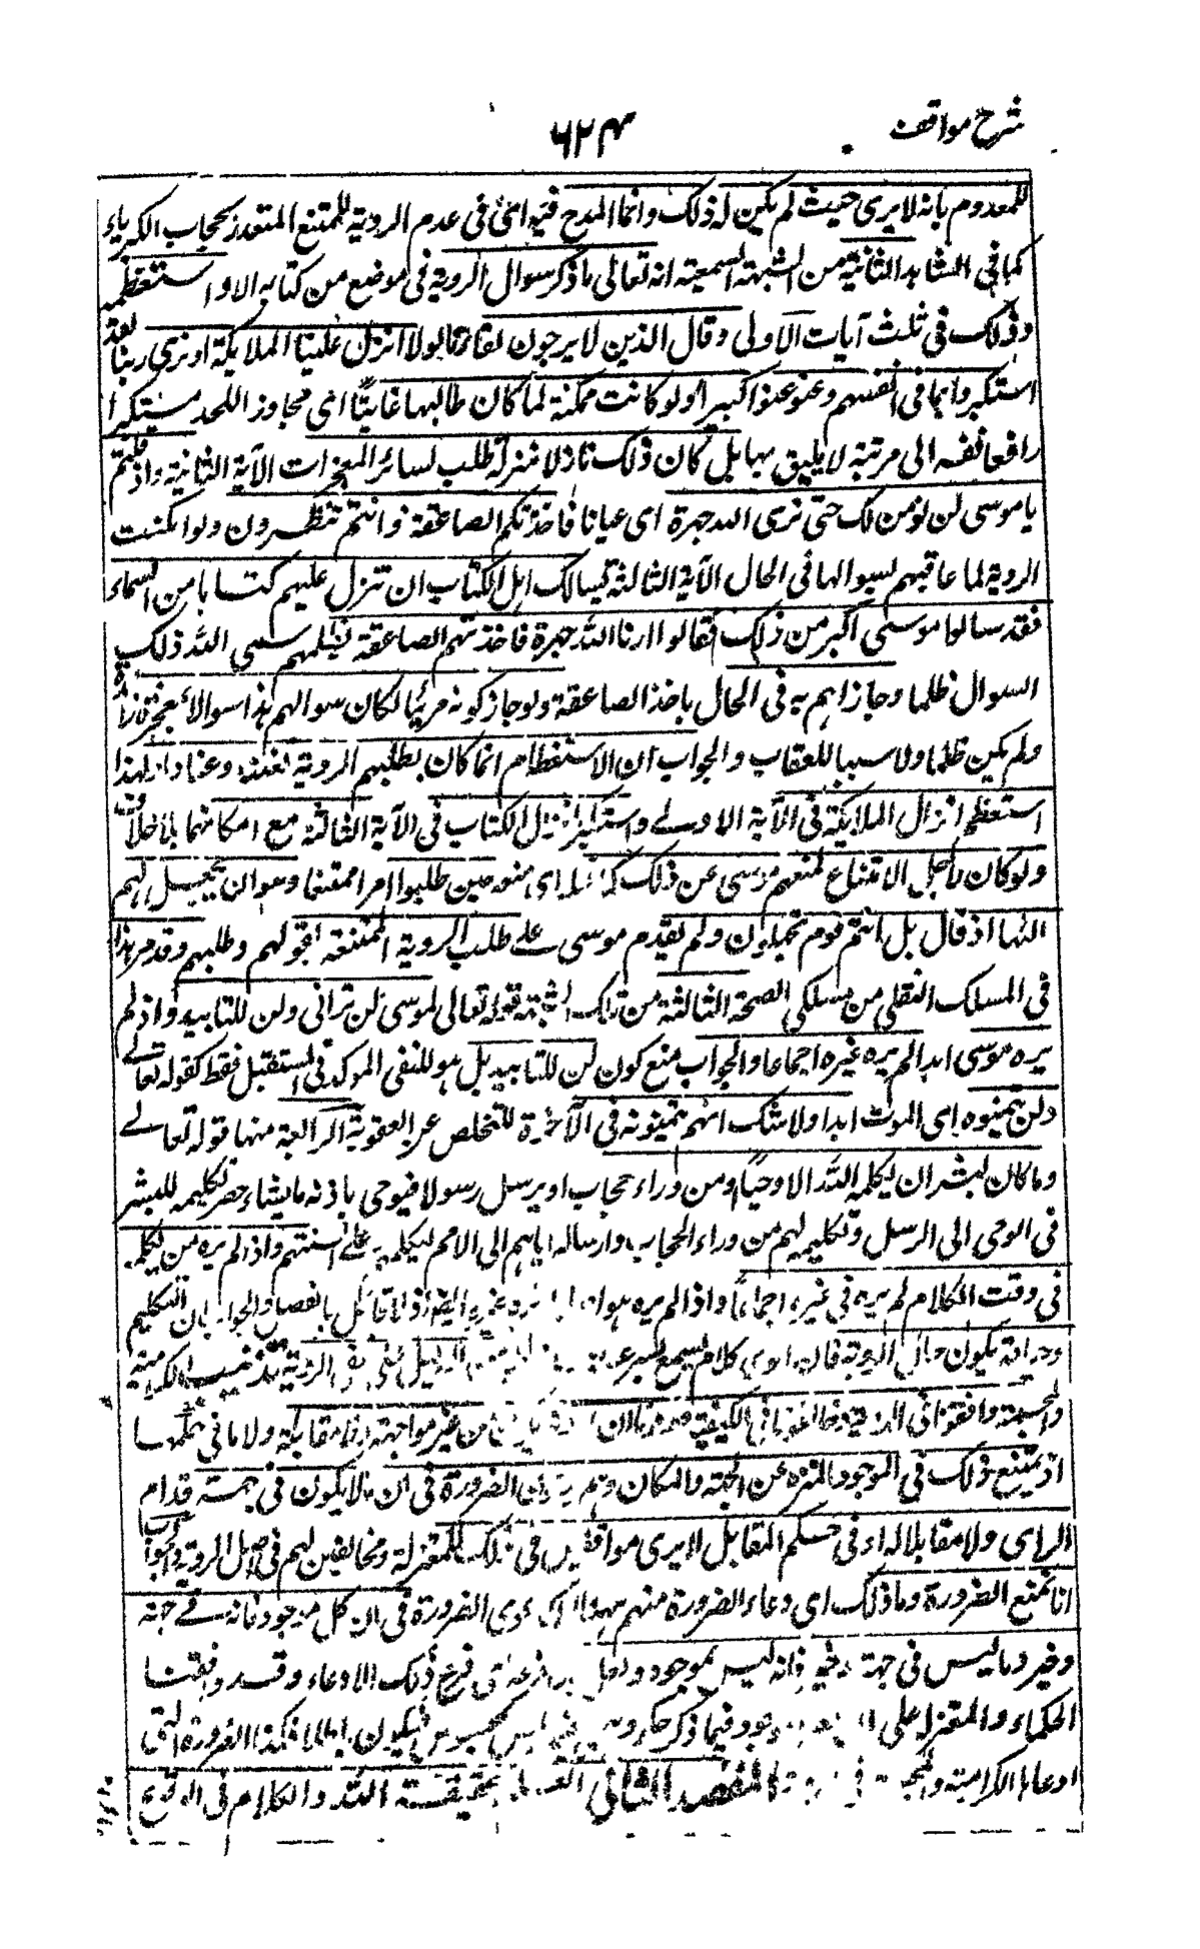 شرح مواقف
٦٢٤
للمعدوم بانه لا يرى حيث لم يكن له ذلك وانما المدح فيه اى فى عدم الروية للممتنع المتعذر بحجاب الكبرياء
كما فى الشاهد الثانية من الشبهة السمعية انه تعالى ما ذكر سوال الروية فى موضع من كتابه الا و استعظمه
وذلك فى ثلث آيات الاولى وقال الذين لا يرجون لقاءنا لولا انزل علينا الملايكة او نرى ربنا لقد
استكبروا فى انفسهم وعتو عتوا كبيرا ولو كانت ممكنة لما كان طالبها عاتيا اى مجاوز اللحد مستكبرا
رافعا نفسه الى مرتبة لا يليق بها بل كان ذلك نازلا منزلة طلب لسائر المعجزات الآية الثانية واذ قلتم
يا موسى لن نومن لك حتى نرى الله جهرة اى عيانا فاخذتكم الصاعقة وانتم تنظرون ولو امكنت
الروية لما عاقبهم بسوالها فى الحال الآية الثالثة يسالك اهل الكتاب ان تنزل عليهم كتابا من السماء
فقد سالوا موسى اكبر من ذلك فقالوا ارنا الله جهرة فاخذتهم الصاعقة بظلمهم سمى الله ذلك
السوال ظلما وجازاهم به فى الحال باخذ الصاعقة ولو جاز كونه مرئيا لكان سوالهم هذا سوالا لمعجزة زائدة
ولم يكن ظلما ولا سببا للعقاب والجواب ان الاستعظام انما كان بطلبهم الروية تعنتا وعنادا ولهذا
استعظم انزال الملايكة فى الآية الاولى واستكبر انزال الكتاب فى الآية الثالثة مع امكانهما بلا خلاف
ولو كان لاجل الامتناع لمنعهم موسى عن ذلك كـ فعله اى منعه حين طلبوا امرا ممتنعا وهو ان يجعل لهم
الٰها اذ قال بل انتم قوم تجهلون ولم يقدم موسى على طلب الروية الممتنعة بقولهم وطلبهم وقد مر هذا
فى المسلك النقلى من مسلكى الصحة الثالثة من تلك الشبهة قوله تعالى لموسى لن ترانى ولن للتابيد واذ لم
يره موسى ابدا لم يره غيره اجماعا والجواب منع كون لن للتابيد بل هو للنفى الموكد فى المستقبل فقط كقوله تعالى
ولن يتمنوه اى الموت ابدا ولا شك انهم يتمنونه فى الآخرة للتخلص عن العقوبة الرابعة منها قوله تعالى
وما كان لبشر ان يكلمه الله الا وحيا او من وراء حجاب او يرسل رسولا فيوحى باذنه ما يشاء حصر تكليمه للبشر
فى الوحى الى الرسل وتكليمه لهم من وراء الحجاب وارساله اياهم الى الامم ليكلمهم على السنتهم واذ لم يره من يكلمه
فى وقت الكلام لم يره فى غيره اجماعا واذا لم يره هو اصلا لم يره غيره ايضا اذ لا قائل بالفصل والجواب ان التكليم
وحيا قد يكون حال الروية فان الوحى كلام يسمع بسرعة الدليل على نفى الروية تذنيب الكرامية
والمجسمة وافقونا فى الروية وخالفونا فى الكيفية من غير مواجهة ولا مقابلة ولا ما فى حكمها
اذ يمتنع ذلك فى الموجود المنزه عن الجهة والمكان وهم يدعون الضرورة فى ان ما لا يكون فى جهة قدام
الراى ولا مقابلا له او فى حكم المقابل لا يرى موافقين فى ذلك للمعتزلة ومخالفين لهم فى اصل الروية والجواب
انا نمنع الضرورة وما ذلك اى دعاء الضرورة منهم هنا الا كدعوى الضرورة فى ان كل موجود فانه فى جهة
وحيز وما ليس فى جهة وحيز فانه ليس بموجود ولعل هذا فرع ذلك الادعاء وقد وافقنا
الحكماء والمعتزلة على فيما ذكر حكم بمحسوس فيكون باطلا فكذا الضرورة التى
ادعاها الكرامية والمجسمة المقصد الثانى العلم بحقيقة الله والكلام فى الوقوع